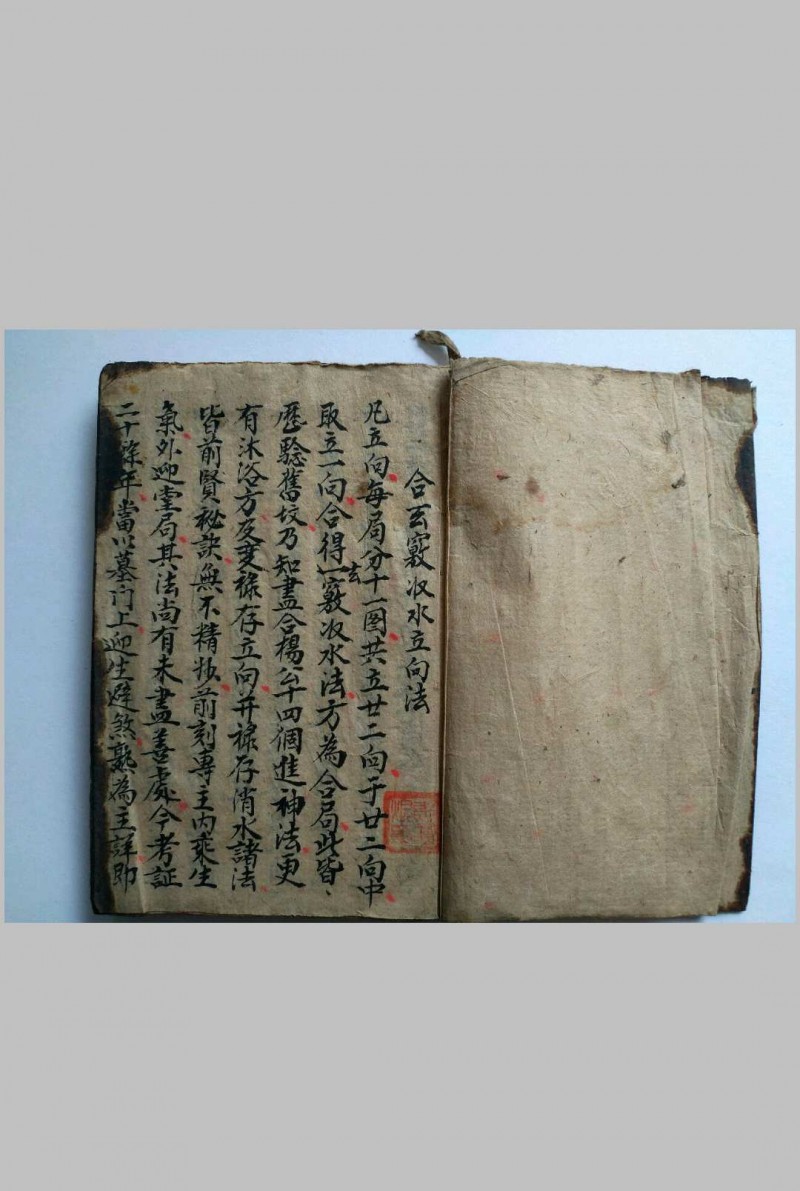 合玄竅收水立向法
凡立向每局分十一图共立廿二向于廿二向中
取立一向合得一玄竅收水法方為合局此皆
歷騐舊坟乃知盡合楊公十四個進神法更
有沐浴方及雙祿存立向并祿存消水諸法
皆前賢秘訣無不精妙前刻專主内乘生
氣外迎堂局其法尚有未盡善處今考証
二十馀年當以墓门上迎生避煞為主詳即